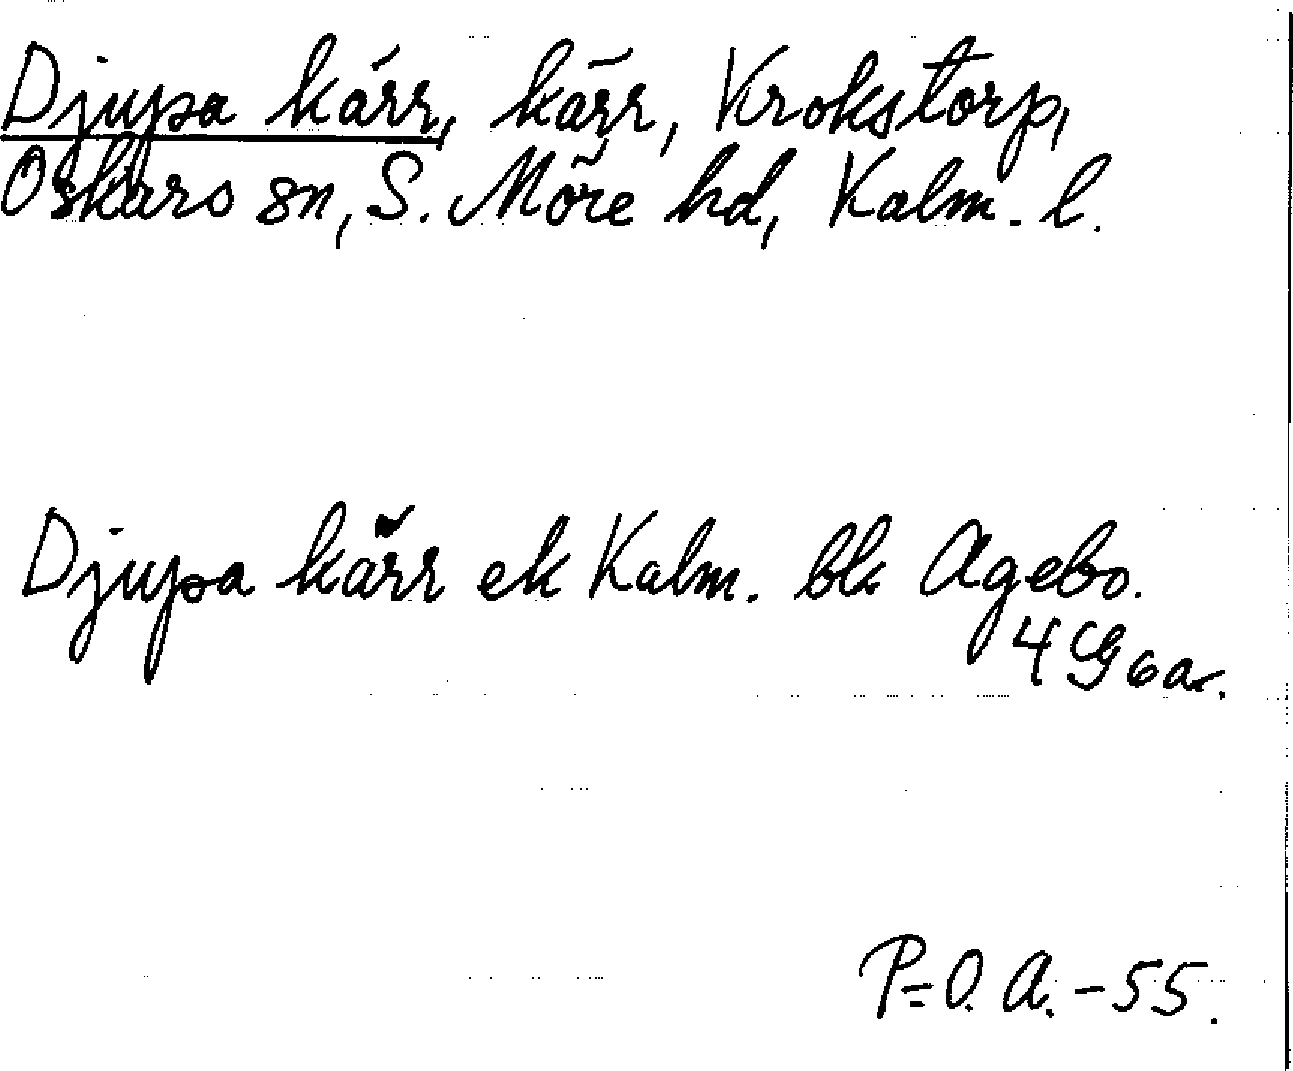 Djupa kärr, kärr, Krokstorp,
Oskars sn, S. Möre hd, Kalm. l.
Djupa kärr ek Kalm. bl. Agebo.
4 G 6 a.
P=O. A. - 55.